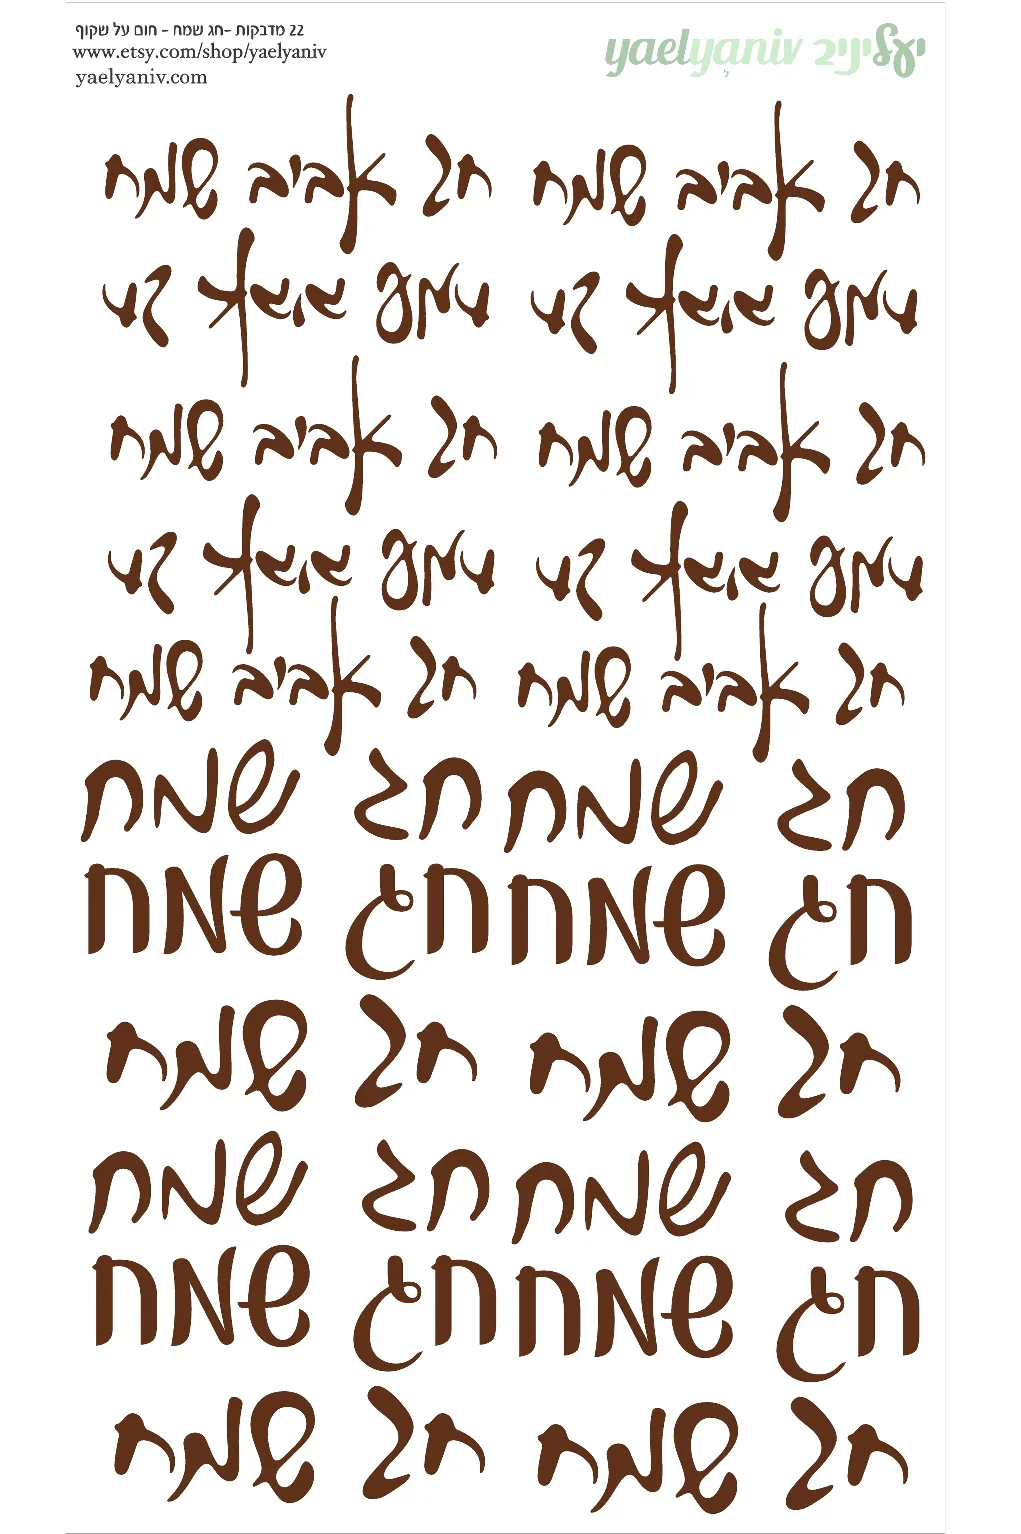 22 מדבקות -חג שמח - חום על שקוף
www.etsy.com/shop/yaelyaniv
yaelyaniv.com
yaelyaniv יעליניב
חג אביב שמח חג אביב שמח
חג אביב שמח חג אביב שמח
חג אביב שמח חג אביב שמח
חג אביב שמח חג אביב שמח
חג אביב שמח חג אביב שמח
חג שמח חג שמח
חג שמח חג שמח
חג שמח חג שמח
חג שמח חג שמח
חג שמח חג שמח
חג שמח חג שמח